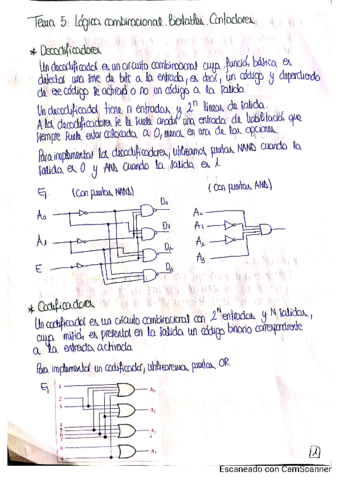 Tema 5: Lógica combinacional. Biestables. Contadores
* Decodificadores
Un decodificador es un circuito combinacional cuya función básica es
detectar una serie de bits a la entrada, es decir, un código y dependiendo
de ese código se activará o no un código a la salida
Un decodificador tiene n entradas y 2ⁿ líneas de salida.
A los decodificadores se le suele añadir una entrada de habilitación que
siempre suele estar colocada a 0, nunca en una de las opciones.
Para implementar los decodificadores, utilizamos puertas NAND cuando la
salida es 0 y AND cuando la salida es 1
Ej (Con puertas NAND) (Con puertas AND)
D₀
A₀ A₀
D₁ A₁
A₁ D₂ A₂
E D₃ A₃
* Codificadores
Un codificador es un circuito combinacional con 2ᴺ entradas y N salidas,
cuya misión es presentar en la salida un código binario correspondiente
a la entrada activada
Para implementar un codificador, utilizaremos puertas OR
Ej 1
2 A₀
3
4
5
6
7
1
Escaneado con CamScanner